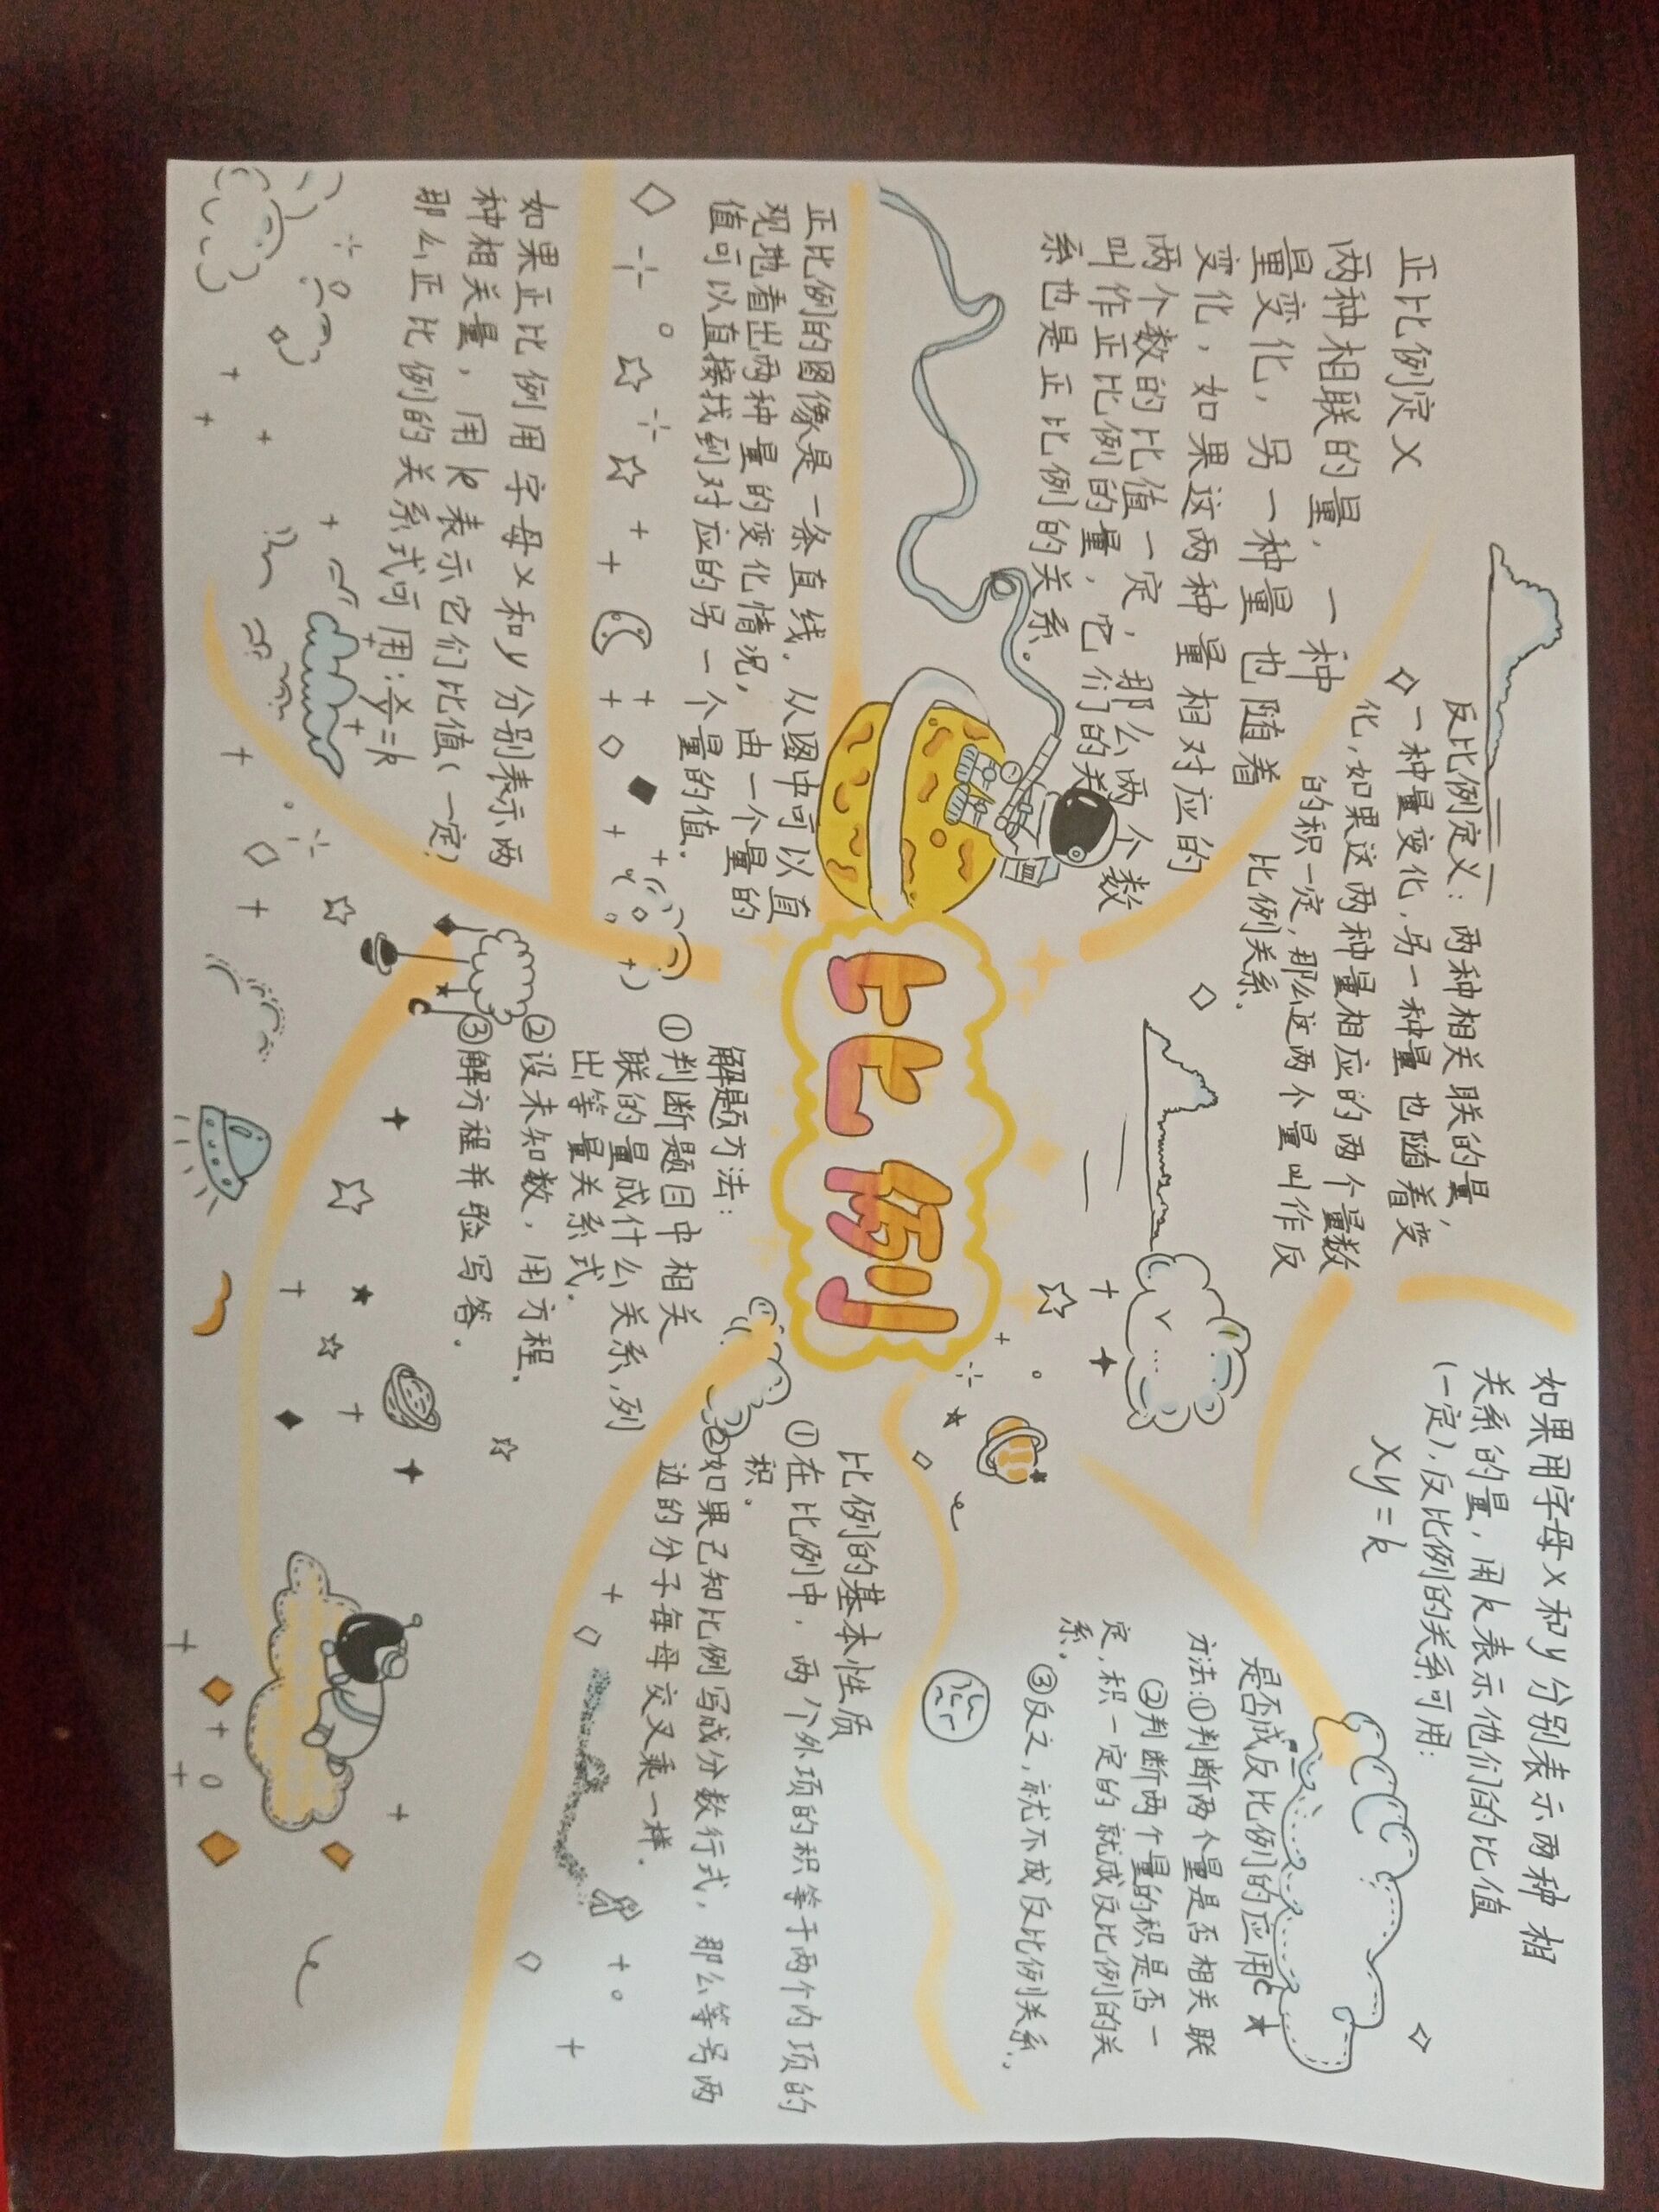 正比例定义
两种相联的量，一种
量变化，另一种量也随着
变化，如果这两种量相对应的
两个数的比值一定，那么两个数
叫作正比例的量，它们的关
系也是正比例的关系。
反比例定义：两种相关联的量，
一种量变化，另一种量也随着变
化，如果这两种量相应的两个量数
的积一定，那么这两个量叫作反
比例关系．
如果用字母x和y分别表示两种相
关系的量，用k表示他们的比值
（一定），反比例的关系可用：
xy=k
是否成反比例的应用
方法：①判断两个量是否相关联
②判断两个量的积是否一
定，积一定的就成反比例的关
系。
③反之，就不成反比例关系．
比例
正比例的图像是一条直线．从图中可以直
观地看出两种量的变化情况，由一个量的
值可以直接找到对应的另一个量的值．
如果正比例用字母x和y分别表示两
种相关量，用k表示它们比值（一定）
那么正比例的关系式可用：x/y=k
解题方法：
①判断题目中相关
联的量成什么关系，列
出等量关系式．
②设未知数，用方程．
③解方程并验写答．
比例的基本性质
①在比例中，两个外项的积等于两个内项的
积．
②如果已知比例写成分数行式，那么等号两
边的分子每母交叉乘一样．